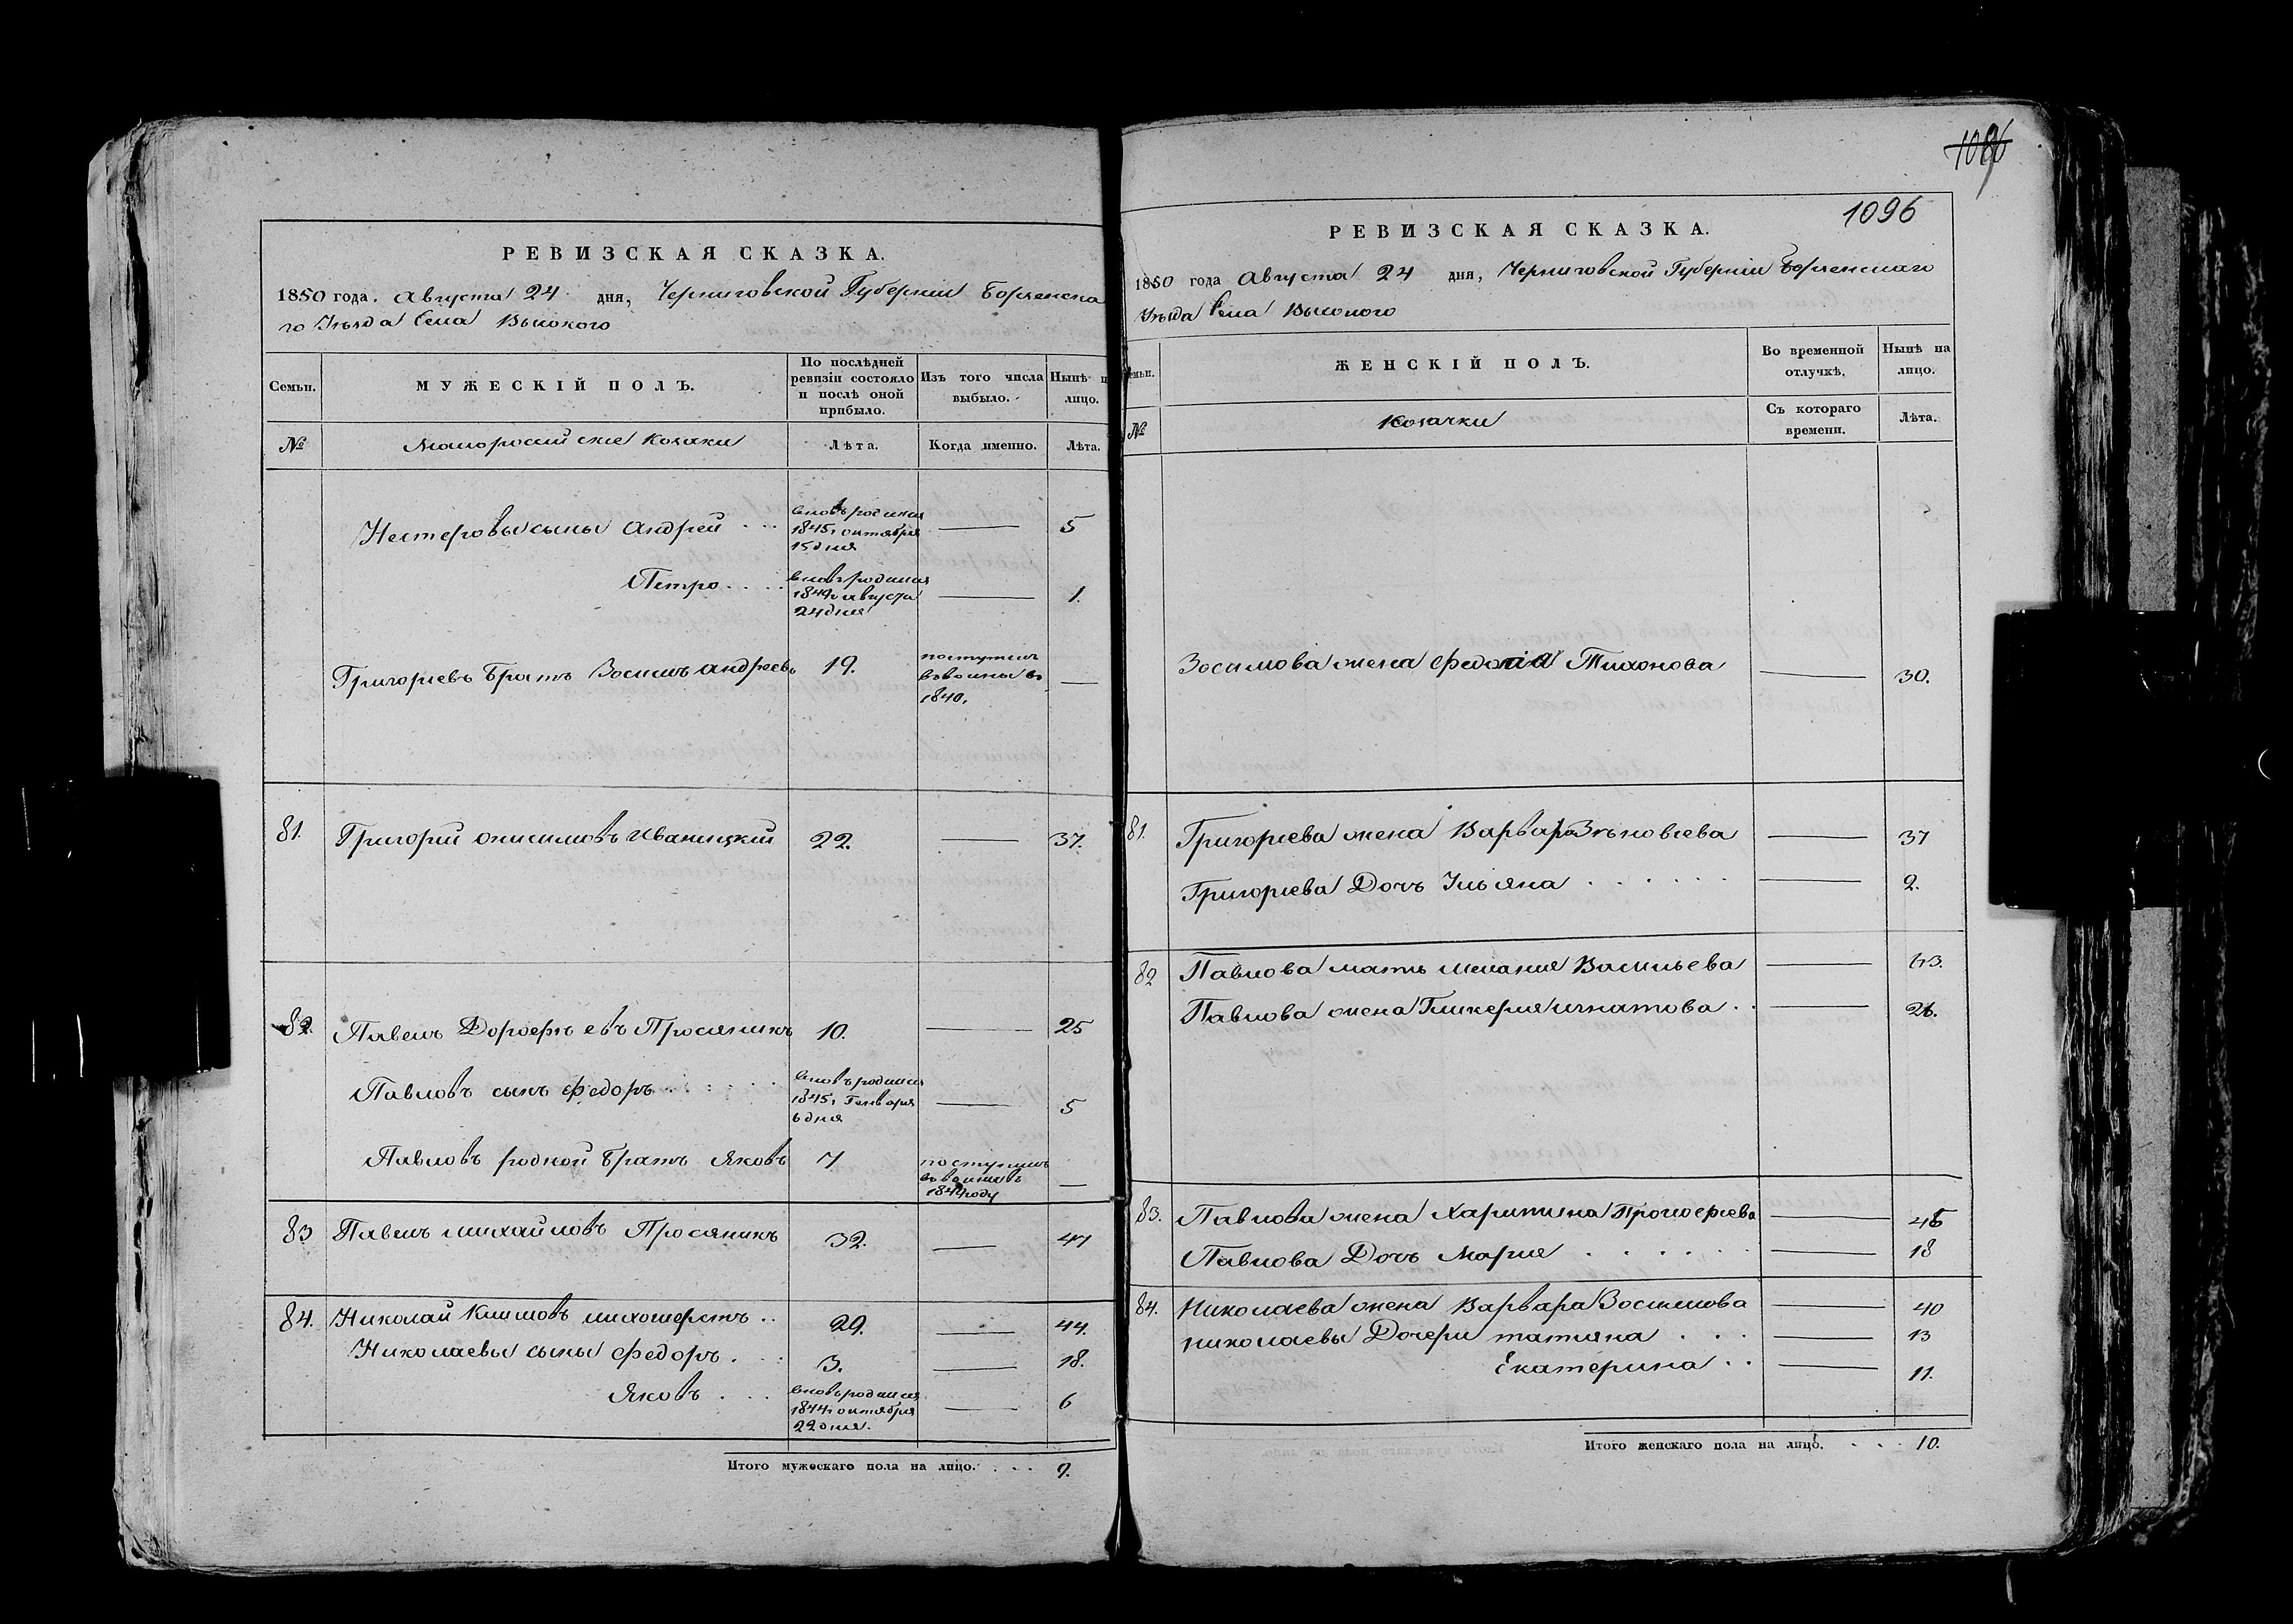 1086
1096
РЕВИЗСКАЯ СКАЗКА.
1850 года. Августа 24 дня, Черниговской Губерніи Борзенска
го Уѣзда Села Высокого
Семьи.
МУЖЕСКІЙ ПОЛЪ.
По послѣдней
ревизіи состояло
и послѣ оной
прибыло.
Изъ того числа
выбыло.
Нынѣ н
лицо.
№
Малороссийские козаки
Лѣта.
Когда именно.
Лѣта.
Нестеровы сыны Андрей . . . вновьродился 1845г октября 15 дня — 5
Петро . . . . вновьродился 1849г августа 24 дня — 1.
Григориевъ братъ Зосимъ андреевъ 19. поступилъ въ воины въ 1840. —
81. Григорий онисимовъ Иваницкий 22. — 37.
82. Павелъ Дорофѣевъ Просяникъ 10. — 25
Павловъ сынъ Федоръ . . . . вновьродился 1845г Генваря 6 дня — 5
Павловъ родной братъ Яковъ 7 поступилъ въ воины въ 1844 году —
83 Павелъ михайловъ Просяникъ 32. — 47
84. Николай Климовъ лихошерстъ . . 29. — 44.
Николаевы сыны Федоръ . . . 3. — 18.
Яковъ . . . вновьродился 1844г октября 22 дня. — 6
Итого мужескаго пола на лицо. . . . . 9.
РЕВИЗСКАЯ СКАЗКА.
1850 года Августа 24 дня, Черниговской Губерніи Борзенскаго
Уѣзда Села Высокого
емьи.
ЖЕНСКІЙ ПОЛЪ.
Во временной
отлучкѣ.
Нынѣ на
лицо.
№
козачки
Съ котораго
времени.
Лѣта.
Зосимова жена Тихонова — 30.
81. Григориева жена Варвара Зѣновиева — 37
Григориева Дочь Ульяна . . . . . . — 2.
82 Павлова мать Мелания Васильева — 43.
Павлова жена Гликерия игнатова . . — 26.
83. Павлова жена Харитина Прокофиева — 45
Павлова Дочь Мария . . . . . . — 18
84. Николаева жена Варвара Зосимова — 40
николаевы Дочери татияна . . . — 13
Екатерина . . — 11.
Итого женскаго пола на лицо. . . . 10.